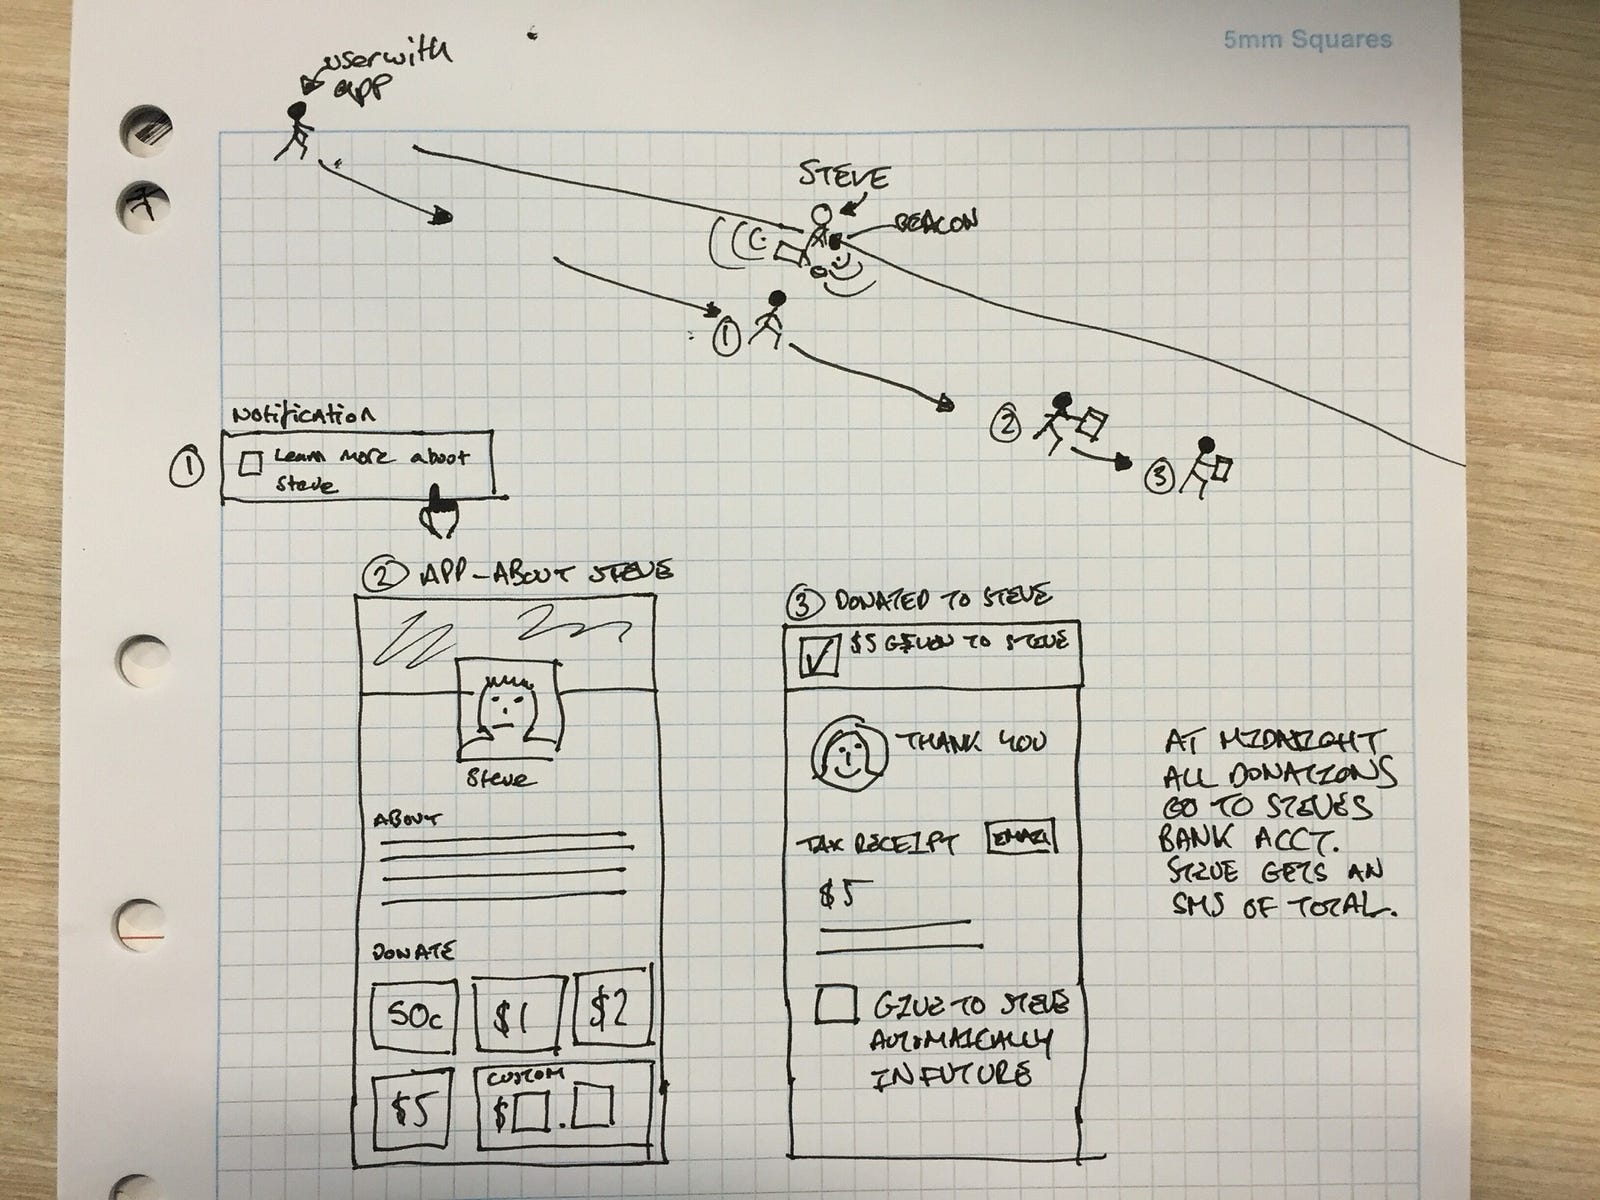 5mm Squares
user with
app
STEVE
BEACON
1
2
3
Notification
1
Learn more about
Steve
2 APP - ABOUT STEVE
Steve
ABOUT
DONATE
50c
$1
$2
$5
CUSTOM
$ .
3 DONATED TO STEVE
$5 GIVEN TO STEVE
THANK YOU
TAX RECEIPT EMAIL
$5
GIVE TO STEVE
AUTOMATICALLY
IN FUTURE
AT MIDNIGHT
ALL DONATIONS
GO TO STEVES
BANK ACCT.
STEVE GETS AN
SMS OF TOTAL.